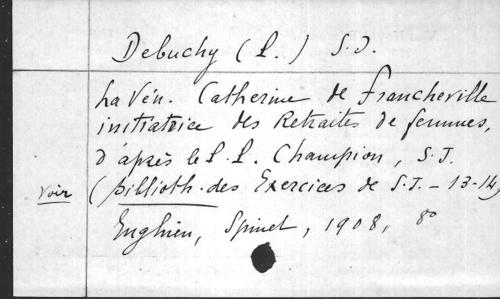 Debuchy (P.) S.J.
La Vén. Catherine de Francheville
initiatrice des Retraites de femmes,
d'après le P. P. Champion, S.J.
voir (Billioth. des Exercices de S.J. - 13-14)
Enghien, Spinet, 1908, 8°